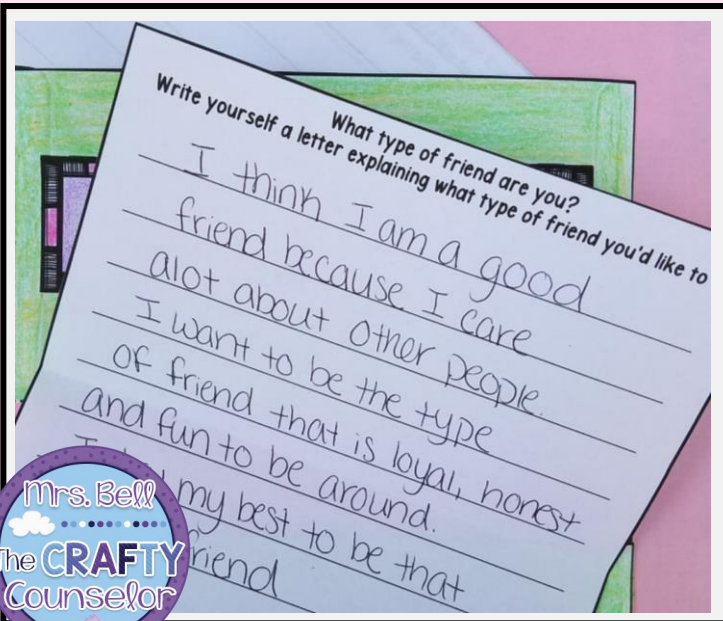 What type of friend are you?
Write yourself a letter explaining what type of friend you'd like to
I think I am a good
friend because I care
alot about other people.
I want to be the type
of friend that is loyal, honest
and fun to be around.
my best to be that
friend
Mrs. Bell
The CRAFTY
Counselor